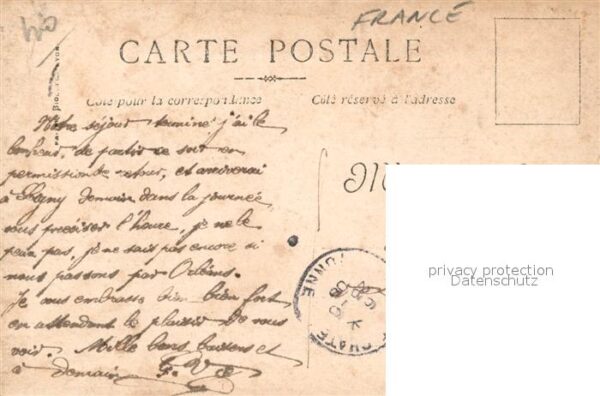 FRANCE
CARTE POSTALE
Côté pour la correspondance
Côté réservé à l'adresse
Notre séjour terminé j'ai le
bonheur, de partir ce soir en
permission de retour, et arriverai
à Ligny demain dans la journée
vous préciser l'heure, je ne le
peux pas, je ne sais pas encore si
nous passons par Orléans.
Je vous embrasse bien bien fort
en attendant le plaisir de vous
voir. Mille bons baisers et
à demain
M
YONNE
privacy protection
Datenschutz